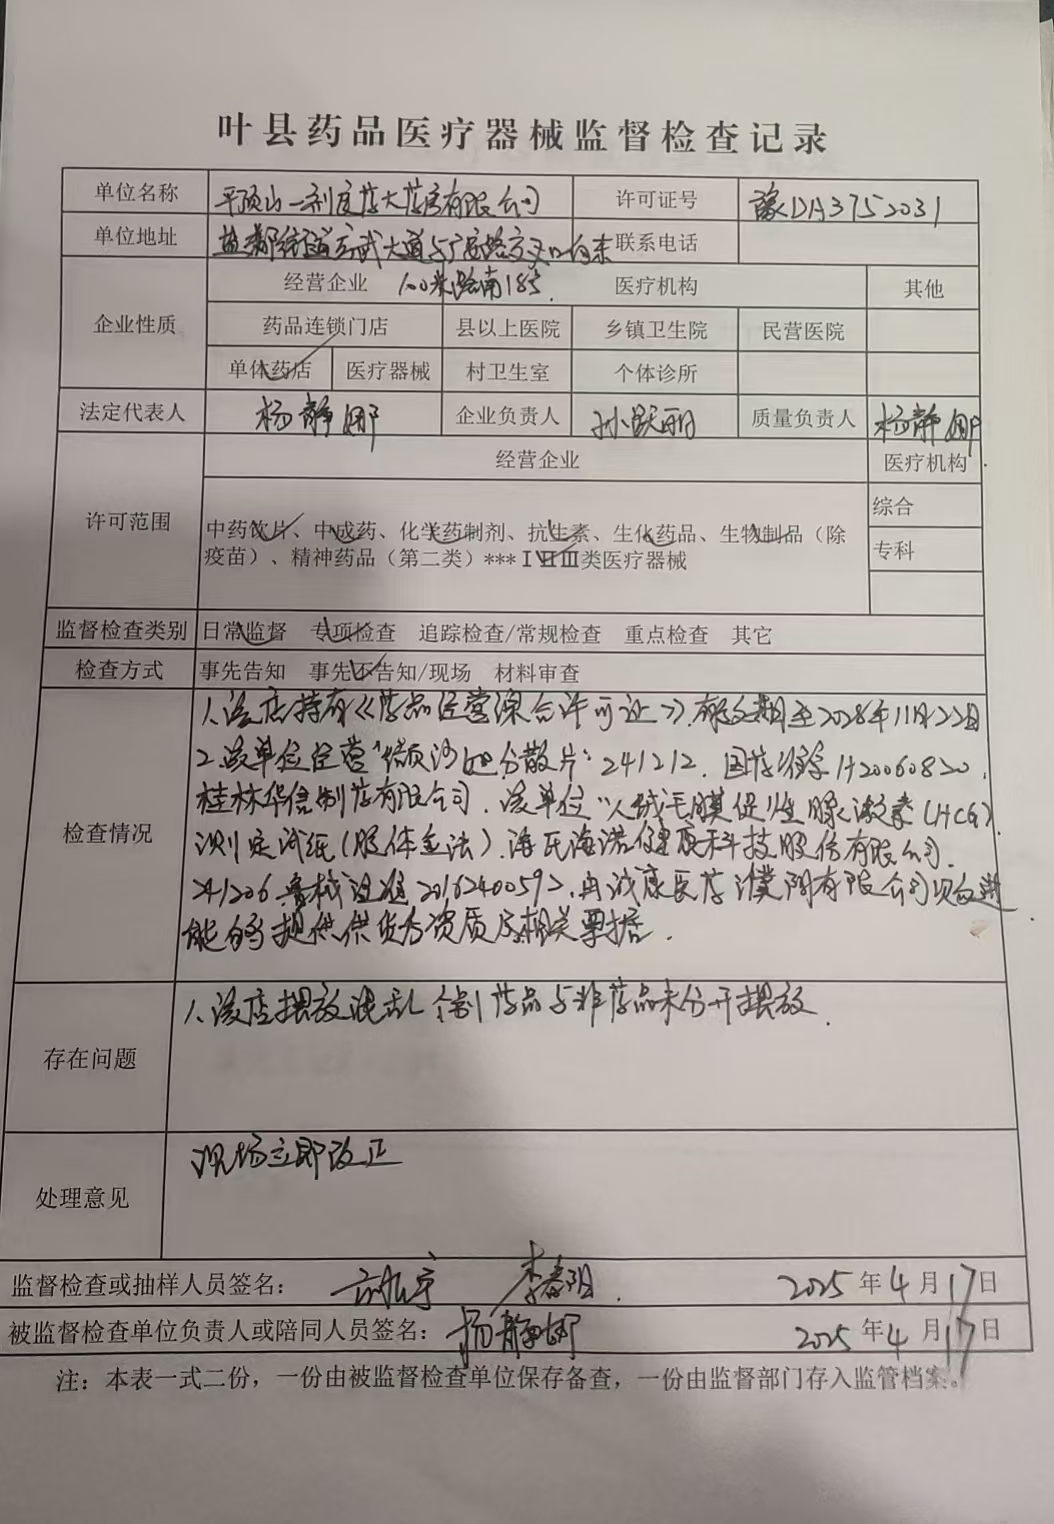 叶县药品医疗器械监督检查记录
单位名称 平顶山一剂良药大药房有限公司 许可证号 豫DA3752031
单位地址 盐都街道玄武大道与广安路交叉口向东 联系电话
100米路南18号
企业性质 经营企业 医疗机构 其他
药品连锁门店 县以上医院 乡镇卫生院 民营医院
单体药店 医疗器械 村卫生室 个体诊所
法定代表人 杨静娜 企业负责人 孙跃丽 质量负责人 杨静娜
许可范围 经营企业 医疗机构
中药饮片、中成药、化学药制剂、抗生素、生化药品、生物制品（除
疫苗）、精神药品（第二类）***ⅠⅡⅢ类医疗器械
综合
专科
监督检查类别 日常监督 专项检查 追踪检查/常规检查 重点检查 其它
检查方式 事先告知 事先不告知/现场 材料审查
检查情况
1、该店持有《药品经营综合许可证》.有效期至2028年11月22日
2.该单位经营“缬沙坦分散片”241212.国药准字H20060820,
桂林华信制药有限公司.该单位“人绒毛膜促性腺激素(HCG)
测定试纸(胶体金法).海氏海诺健康科技股份有限公司.
241206鲁械注准20162400592,由诚康医药濮阳有限公司购进
能够提供供货方资质及相关票据.
存在问题
1、该店摆放混乱 个别药品与非药品未分开摆放.
处理意见
现场立即改正
监督检查或抽样人员签名： 李春阳 2025年4月17日
被监督检查单位负责人或陪同人员签名：杨静娜 2025年4月17日
注：本表一式二份，一份由被监督检查单位保存备查，一份由监督部门存入监管档案。